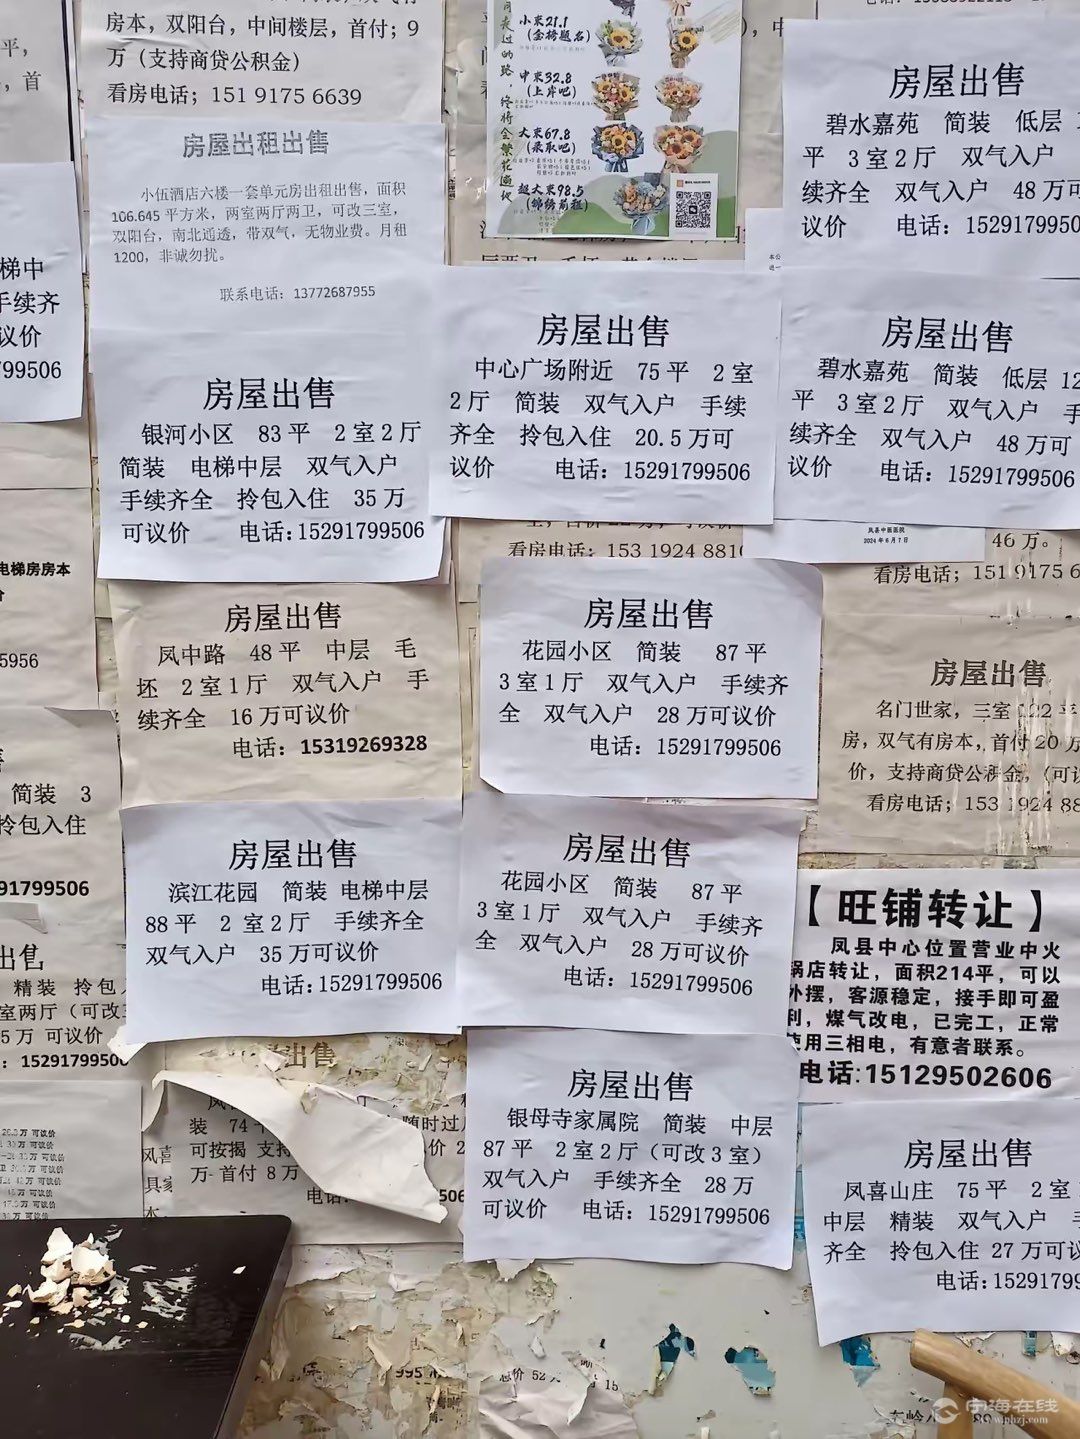 房本，双阳台，中间楼层，首付；9
万（支持商贷公积金）
看房电话；151 9175 6639
房屋出租出售
小伍酒店六楼一套单元房出租出售，面积
106.645 平方米，两室两厅两卫，可改三室，
双阳台，南北通透，带双气，无物业费。月租
1200，非诚勿扰。
联系电话：13772687955
小束21.1
（金榜题名）
中束32.8
（上岸吧）
大束67.8
（录取吧）
超大束98.5
（锦绣前程）
走过的路，终将全繁花遍地
房屋出售
碧水嘉苑 简装 低层
平 3室2厅 双气入户
续齐全 双气入户 48万可
议价 电话：1529179950
梯中
手续齐
议价
799506
房屋出售
银河小区 83平 2室2厅
简装 电梯中层 双气入户
手续齐全 拎包入住 35万
可议价 电话：15291799506
房屋出售
中心广场附近 75平 2室
2厅 简装 双气入户 手续
齐全 拎包入住 20.5万可
议价 电话：15291799506
房屋出售
碧水嘉苑 简装 低层 12
平 3室2厅 双气入户 手
续齐全 双气入户 48万可
议价 电话：15291799506
凤县中医医院
2024年6月7日
46万。
看房电话；151 9175 6
看房电话：153 1924 8810
电梯房房本
5956
房屋出售
凤中路 48平 中层 毛
坯 2室1厅 双气入户 手
续齐全 16万可议价
电话：15319269328
房屋出售
花园小区 简装 87平
3室1厅 双气入户 手续齐
全 双气入户 28万可议价
电话：15291799506
房屋出售
名门世家，三室122平
房，双气有房本，首付20万
价，支持商贷公积金，（可议
看房电话；153 1924 88
简装 3
拎包入住
91799506
房屋出售
滨江花园 简装 电梯中层
88平 2 室2厅 手续齐全
双气入户 35万可议价
电话：15291799506
房屋出售
花园小区 简装 87平
3室1厅 双气入户 手续齐
全 双气入户 28万可议价
电话：15291799506
【旺铺转让】
凤县中心位置营业中火
锅店转让，面积214平，可以
外摆，客源稳定，接手即可盈
利，煤气改电，已完工，正常
使用三相电，有意者联系。
电话：15129502606
出售
精装 拎包入
室两厅（可改3
5万 可议价
：15291799506
出售
装 74
可按揭 支持
万-首付8万
随时过
电话
506
凤喜
具家
本
房屋出售
银母寺家属院 简装 中层
87平 2室2厅（可改3室）
双气入户 手续齐全 28万
可议价 电话：15291799506
房屋出售
凤喜山庄 75平 2室
中层 精装 双气入户 手
齐全 拎包入住 27万可议
电话：15291799
995
总价 52
15
宁海在线
www.nhzj.com